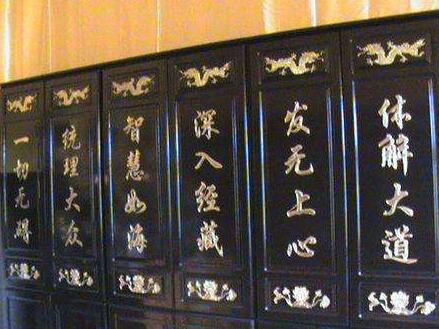 体解大道
发无上心
深入经藏
智慧如海
统理大众
一切无碍